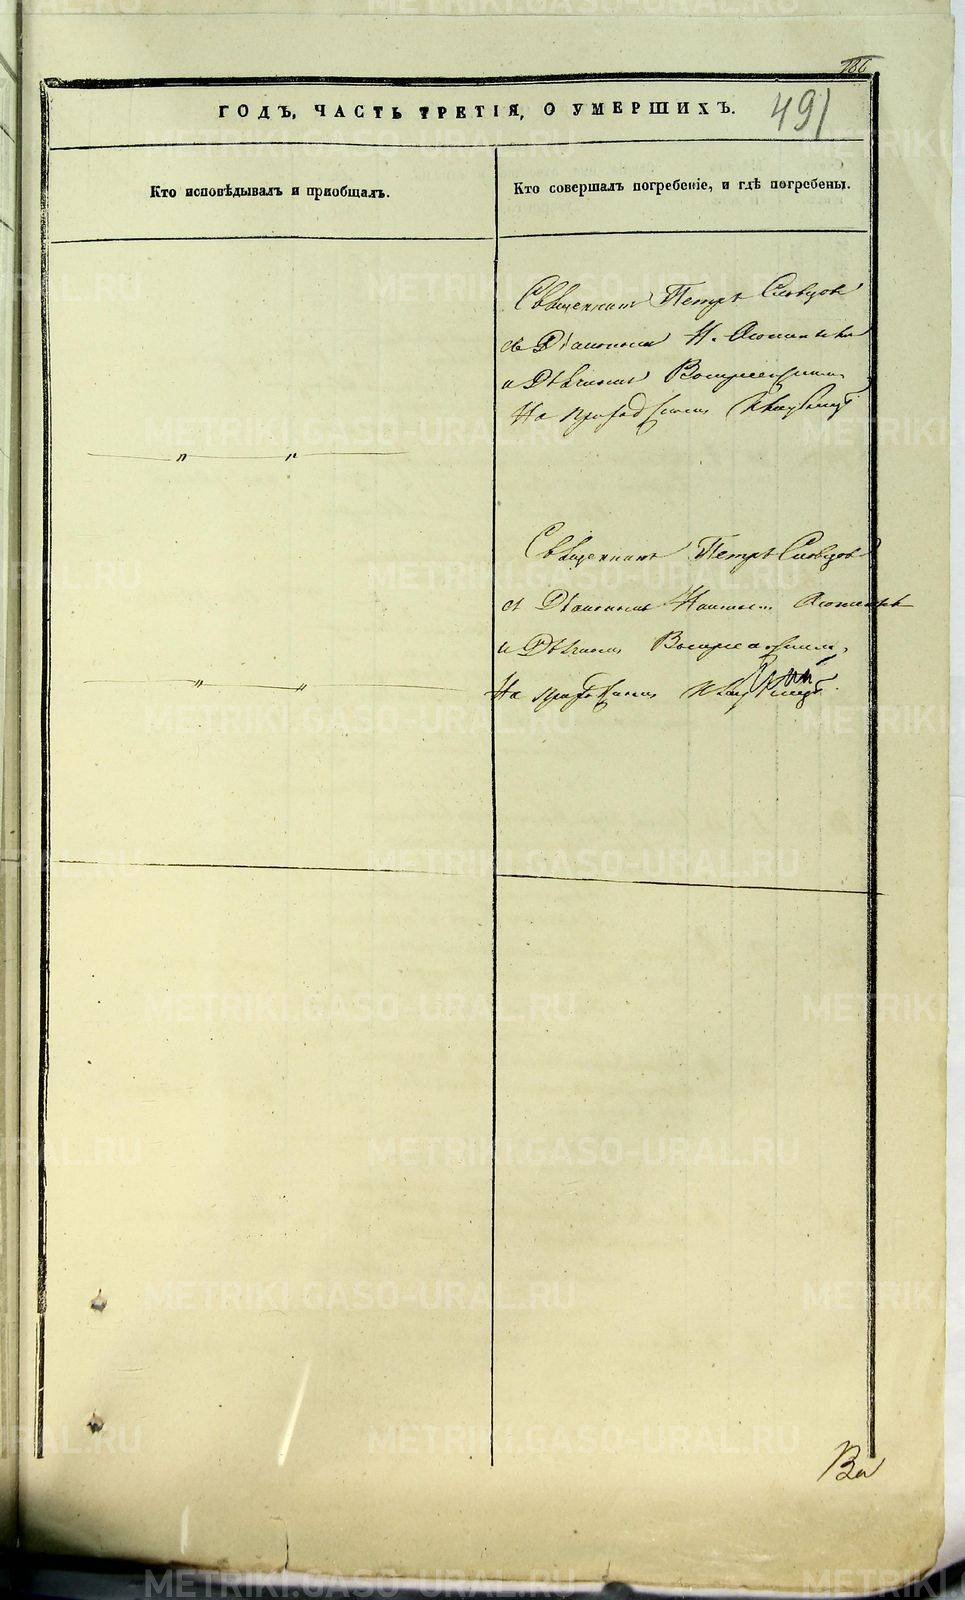 186
ГОДЪ, ЧАСТЬ ТРЕТІЯ, О УМЕРШИХЪ.
491
Кто исповѣдывалъ и пріобщалъ.
Кто совершалъ погребеніе, и гдѣ погребены.
Священникъ Петръ Словцовъ
съ Діакономъ Н.
и Дьячкомъ Воскресенскимъ
На приходскомъ кладбищѣ
Священникъ Петръ Словцовъ
съ Діакономъ
и Дьячкомъ Воскресенскимъ,
На приходскомъ кладбищѣ.
METRIKI.GASO-URAL.RU